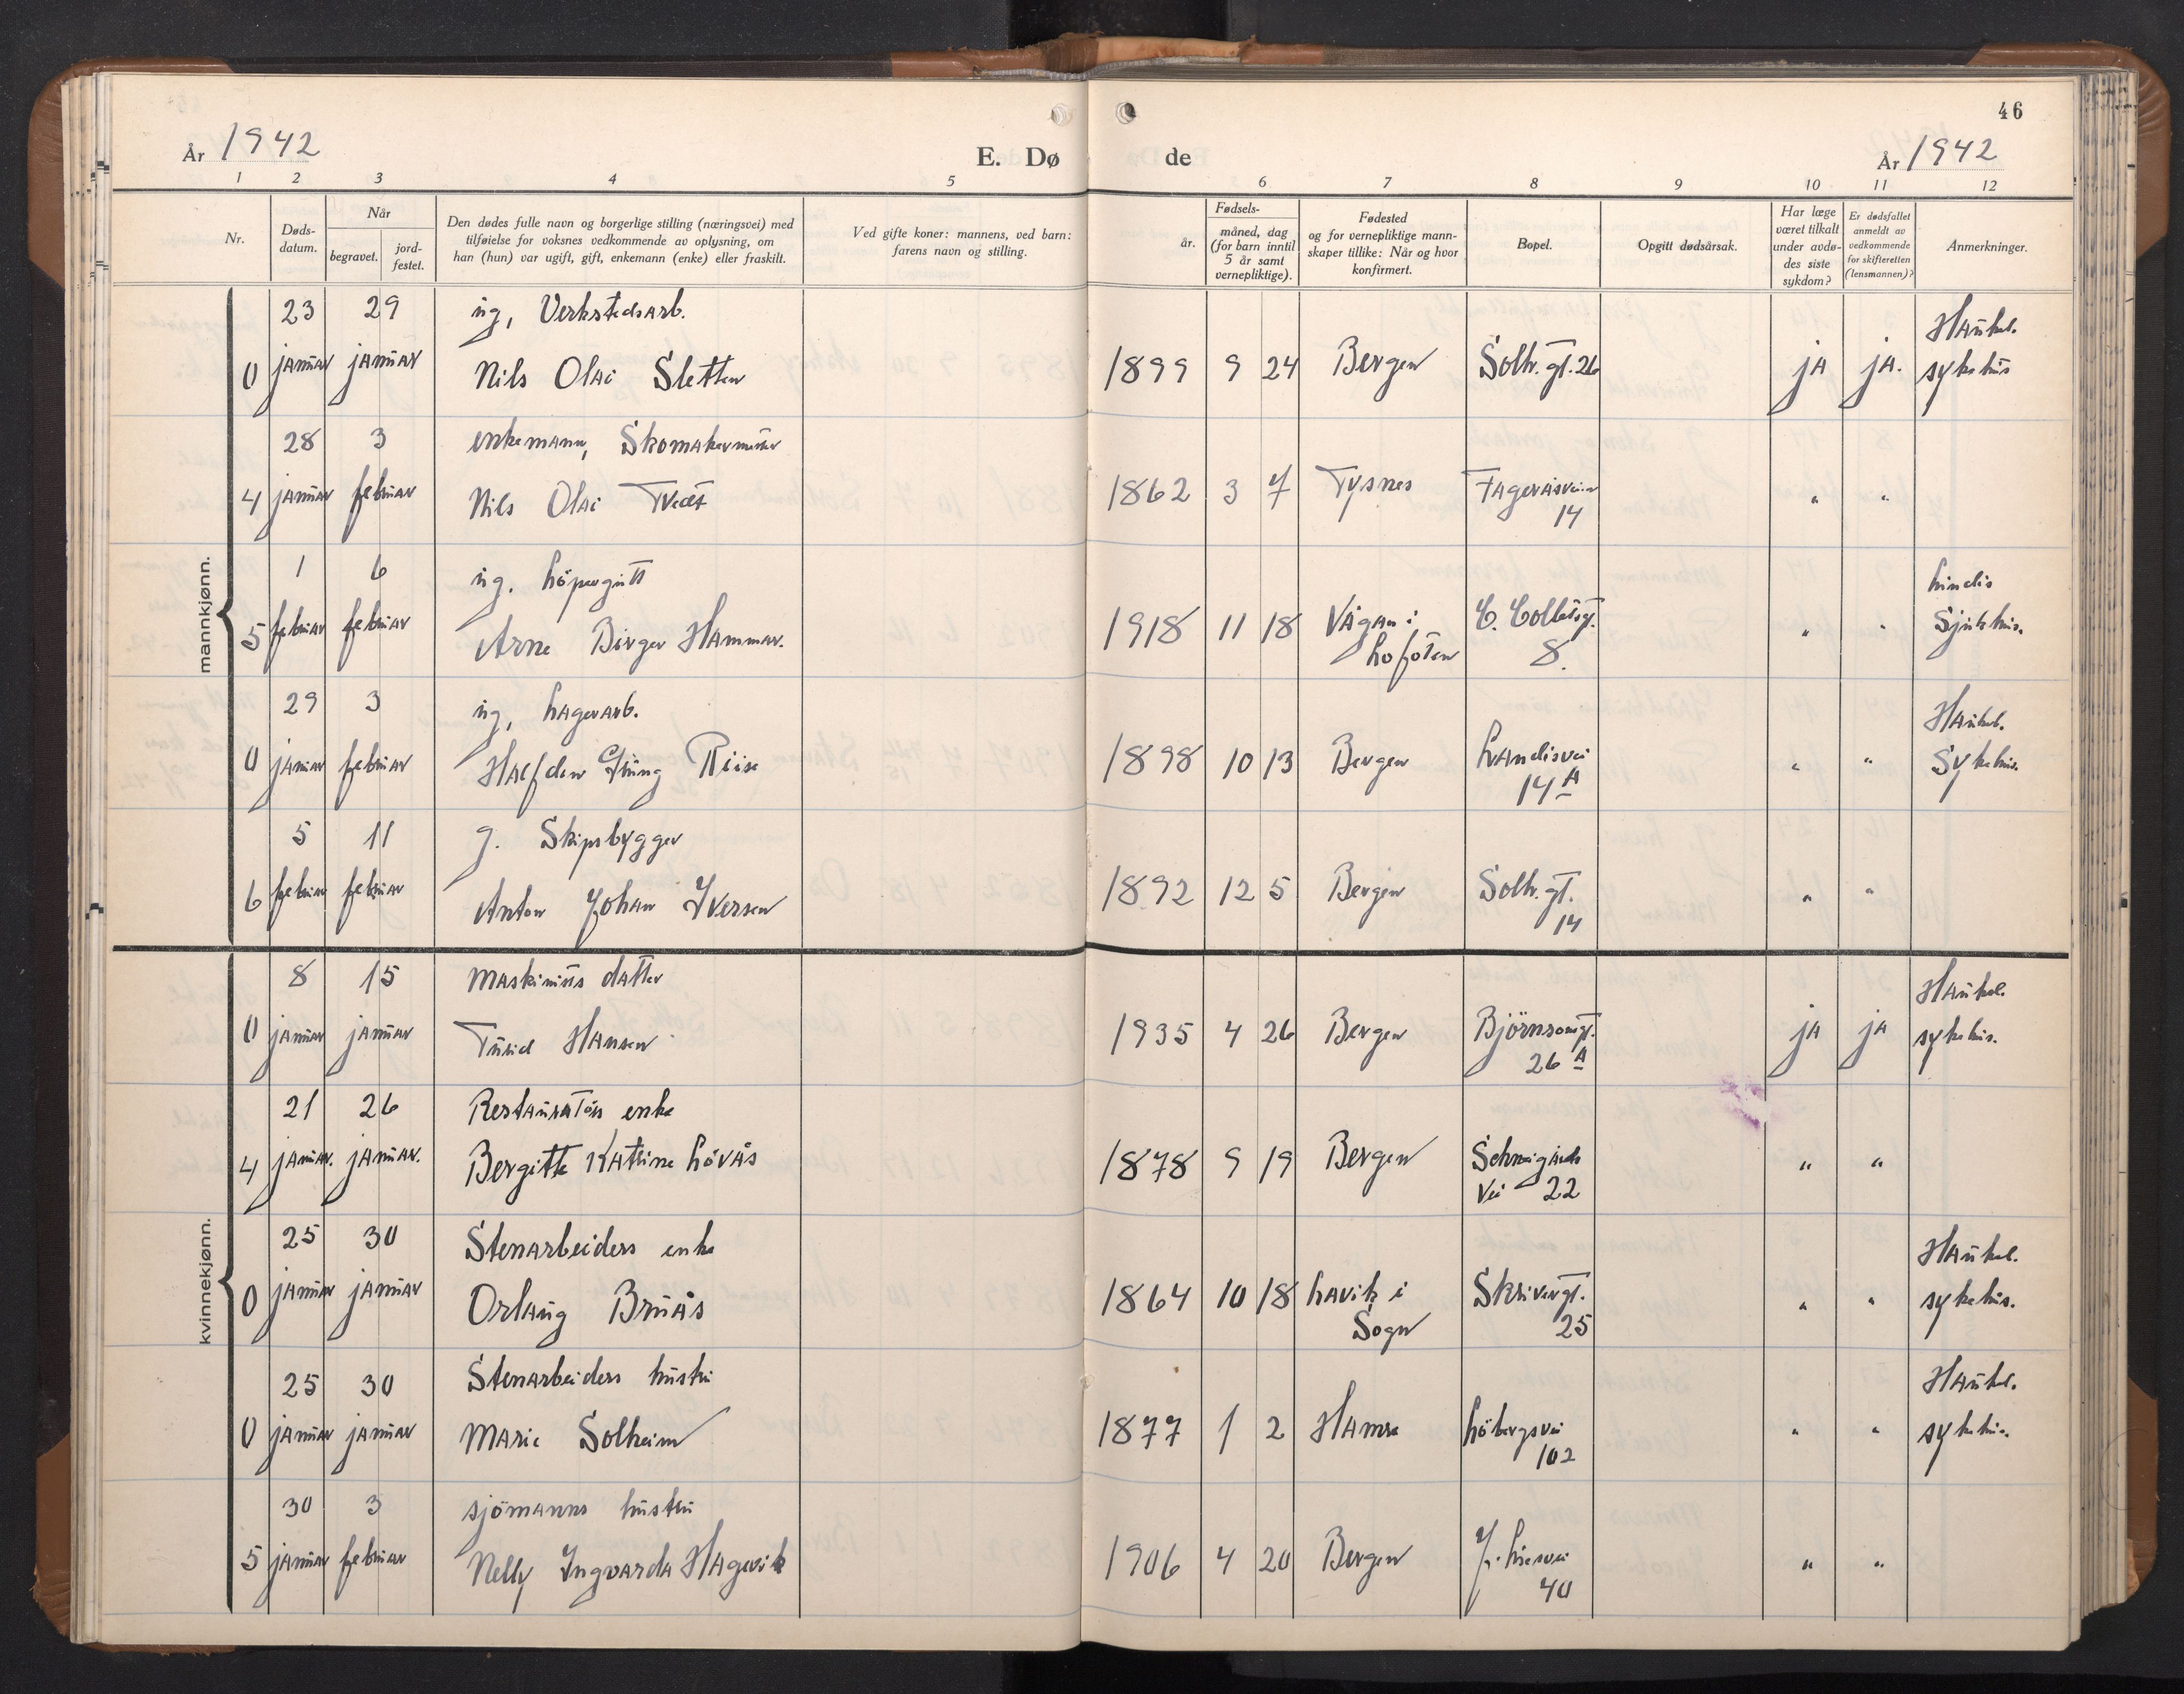 46
År 1942 E. Dø de År 1942
1 2 3 4 5 6 7 8 9 10 11 12
Nr.
Døds-
datum.
Når
begravet.
jord-
festet.
Den dødes fulle navn og borgerlige stilling (næringsvei) med
tilføielse for voksnes vedkommende av oplysning, om
han (hun) var ugift, gift, enkemann (enke) eller fraskilt.
Ved gifte koner: mannens, ved barn:
farens navn og stilling.
år.
Fødsels-
måned, dag
(for barn inntil
5 år samt
vernepliktige).
Fødested
og for vernepliktige mann-
skaper tillike: Når og hvor
konfirmert.
Bopel.
Opgitt dødsårsak.
Har læge
været tilkalt
under avdø-
des siste
sykdom?
Er dødsfallet
anmeldt av
vedkommende
for skifteretten
(lensmannen)?
Anmerkninger.
mannkjønn.
23 29 ug, Verkstedsarb. Haukel.
0 januar januar Nils Olai Sletten 1899 9 24 Bergen Solh. gt. 26 ja ja. sykehus
28 3 enkemann, Skomakermester
4 januar februar Nils Olai Tveit 1862 3 7 Tysnes Fageråsveien " "
14
1 6 ug. løpergutt Lindis
5 februar februar Arne Birger Hammar. 1918 11 18 Vågan i C. Colletsgt. " " Sjukhus.
Lofoten 8.
29 3 ug, lagerarb. Haukel.
0 januar februar Halfdan Grung Riise 1898 10 13 Bergen Lrandisvei " " Sykehus.
14 A
5 11 g. Skipsbygger
6 februar februar Anton Johan Iversen 1892 12 5 Bergen Solh. gt. " "
14
kvinnekjønn.
8 15 Maskinists datter Haukel.
0 januar januar Turid Hansen 1935 4 26 Bergen Bjørnsonsgt. ja ja sykehus.
26 A
21 26 Restauratørs enke
4 januar. januar. Bergitte Katrine Løvås 1878 9 19 Bergen Schweigårds " "
Vei 22
25 30 Stenarbeiders enke Haukel.
0 januar januar Orlaug Bruås 1864 10 18 Lavik i Skrivergt. " " sykehus.
Sogn 25
25 30 Stenarbeiders hustru Haukel.
0 januar januar Marie Solheim 1877 1 2 Hamre Løbergsvei " " sykehus.
102
30 3 sjømanns hustru
5 januar februar Nelly Ingvarda Hagevik 1906 4 20 Bergen J. Liesvei " "
40